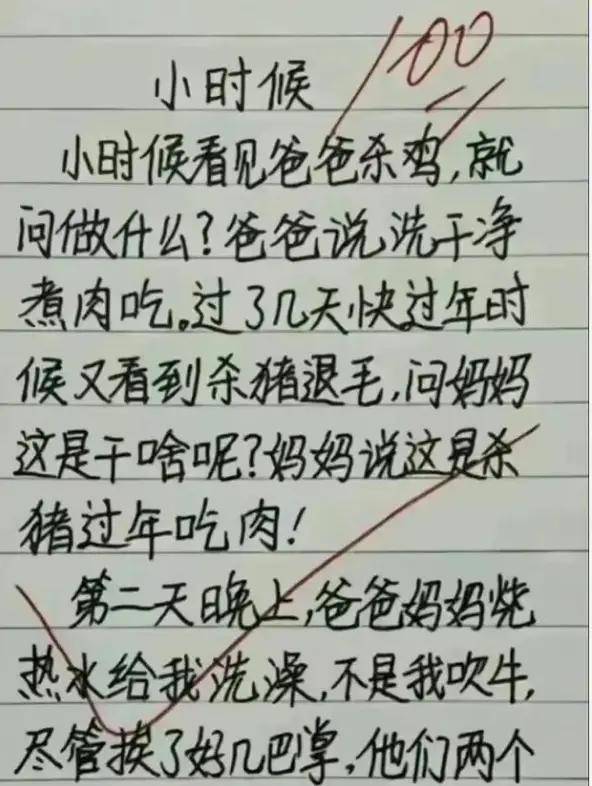 100
小时候
小时候看见爸爸杀鸡,就
问做什么?爸爸说洗干净
煮肉吃。过了几天快过年时
候又看到杀猪退毛,问妈妈
这是干啥呢?妈妈说这是杀
猪过年吃肉!
第二天晚上,爸爸妈妈烧
热水给我洗澡,不是我吹牛,
尽管挨了好几巴掌,他们两个